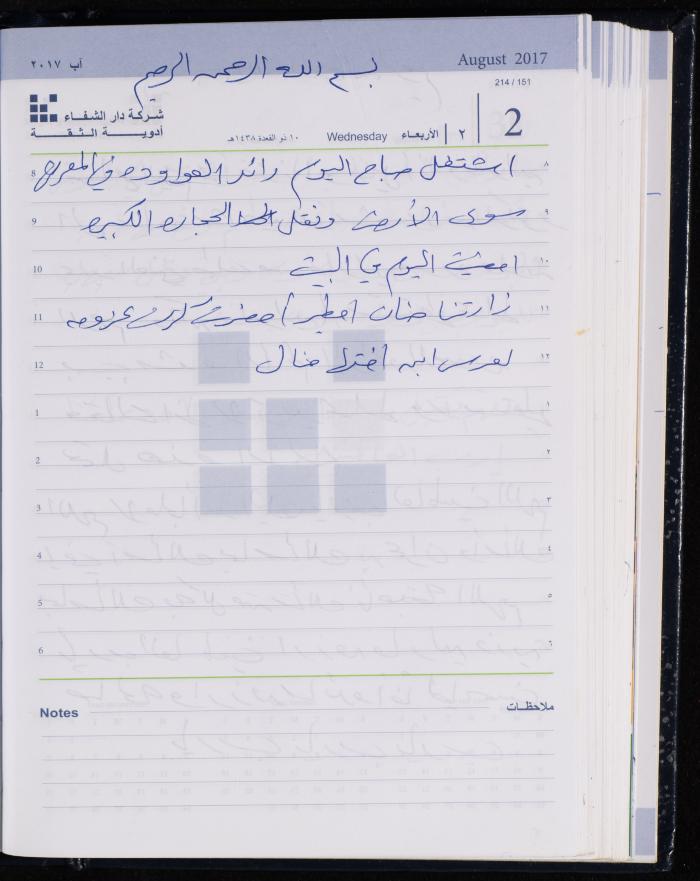 آب ٢٠١٧
August 2017
بسم الله الرحمن الرحيم
214 / 151
شركة دار الشفاء
أدويـــة الثـقـة
١٠ ذو القعدة ١٤٣٨هـ
Wednesday
الأربعاء
٢
2
8 اشتغل صباح اليوم رائد العواوده في المفرق ٨
9 سوى الأرض ونقل الحجاره الكبيره ٩
10 امضيت اليوم في البيت ١٠
11 زارتنا حنان اكرت عزومه ١١
12 لعرس ابن اختها منال ١٢
1 ١
2 ٢
3 ٣
4 ٤
5 ٥
6 ٦
Notes
ملاحظات